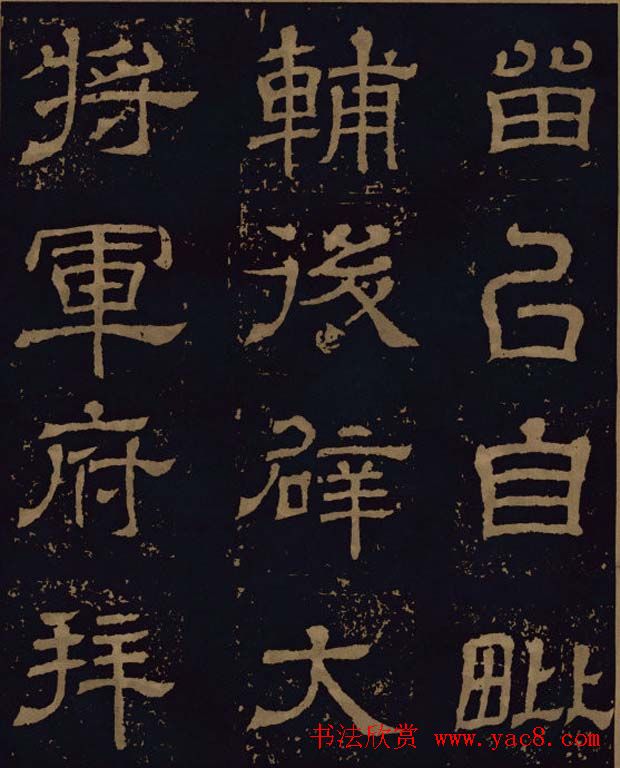 留㠯自毗
輔後辟大
將軍府拜
书法欣赏 www.yac8.com